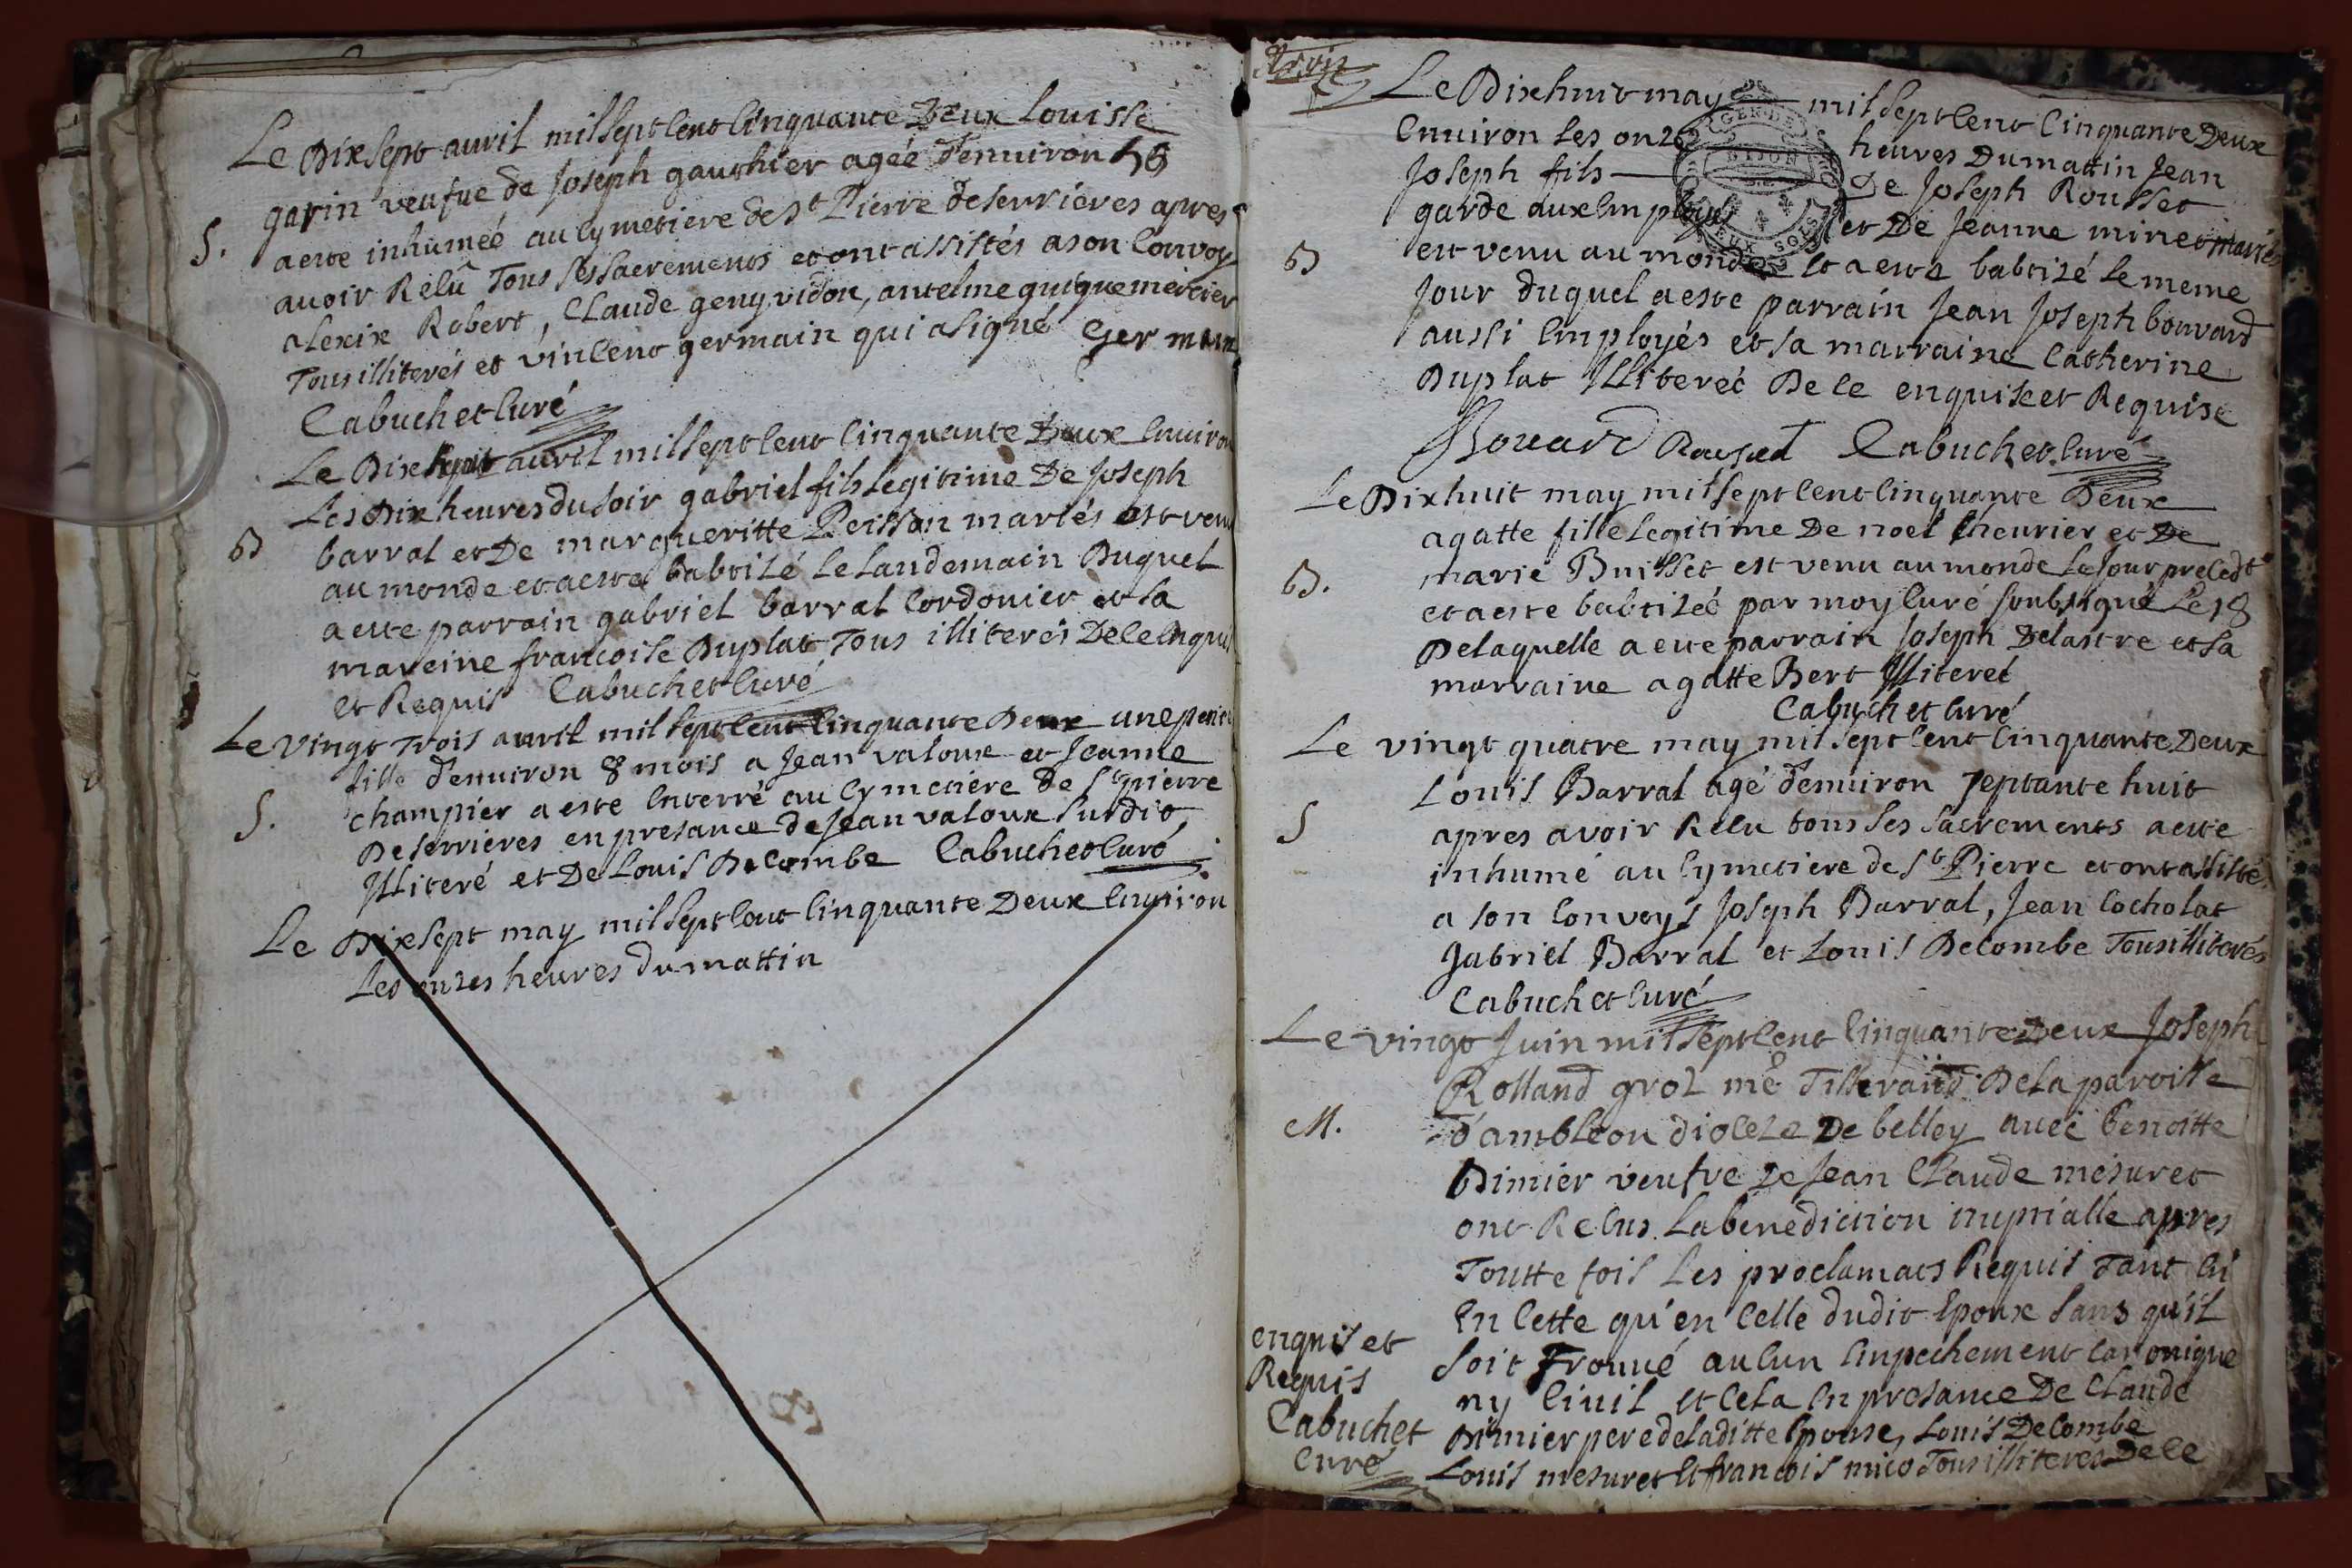 Le Dixsept auril mil sept cent cinquante Deux Louisse
garin veufue de Joseph gauthier agée d'enuiron 58
S. a este inhumée au cymetiere de St Pierre de serrieres apres
auoir Recû Tous ses sacrements et ont assistés a son convoy
alexix Robert, Claude geny vidon, antelme guigue mercier
Tous illiterés et vincent germain qui a signé Germain
Cabuchet curé
Le Dix sept auril mil sept cent cinquante Deux enuiron
Les Dix heures du soir gabriel fils legitime De Joseph
B barral et De margueritte Peisson mariés est venu
au monde et a este babtizé le landemain Duquel
a este parrain gabriel barral cordonier et sa
mareine francoise Duplat Tous illiterés De ce enquis
et Requis Cabuchet curé
Le vingt Trois auril mil sept cent cinquante Deux une petite
fille d'enuiron 8 mois a Jean valoux et Jeanne
S. champier a este enterré au cymetiere de St pierre
De serrieres en presance de Jean valoux surdit
Illiteré et De Louis Decombe Cabuchet curé
Le Dixsept may mil sept cent cinquante Deux enuiron
Les onzes heures du mattin
Trois
Le Dixhuit may mil sept cent cinquante Deux
enuiron les onze heures Du mattin Jean
Joseph fils De Joseph Rousset
garde aux employs et De Jeanne minet mariés
B est venu au monde et a este babtizé le meme
Jour duquel a este parrain Jean Joseph bouvard
aussi employés et sa marraine Catherine
Duplat Illiterée De ce enquise et Requise
Bouard Rousset Cabuchet curé
Le Dixhuit may mil sept cent cinquante Deux
agatte fille legitime De noel theurier et De
B. marie Buisset est venu au monde Le Jour precedt
et a este babtizeé par moy curé soubsigné Le 18
De laquelle a este parrain Joseph Delastre et sa
marraine agatte Bert Illiteret
Cabuchet curé
Le vingt quatre may mil sept cent cinquante Deux
Louis Barral agé d'enuiron septante huit
S apres avoir Recu tous ses sacrements a este
inhumé au cymetiere de St Pierre et ont assisté
a son convoys Joseph Barral, Jean Cocholat
Gabriel Barral et Louis Decombe Tous illiterés
Cabuchet curé
Le vingt Juin mil sept cent cinquante Deux Joseph
Rolland groz me Tisserand De la paroisse
M. d'ambléon dioceze De belley avec benoitte
Dimier veufve De Jean Claude mesuret
ont Recus La benediction nuprialle apres
Toutte fois Les proclamaos Requis Tant en
En cette qu'en celle dudit Epoux sans qu'il
soit Trouué aucun empechement canonique
ny civil et cela en presance De Claude
Dimier pere de laditte Epouse, Louis Decombe
Louis mesuret et francois mico Tous illiterés De ce
enquis et
Requis
Cabuchet
curé